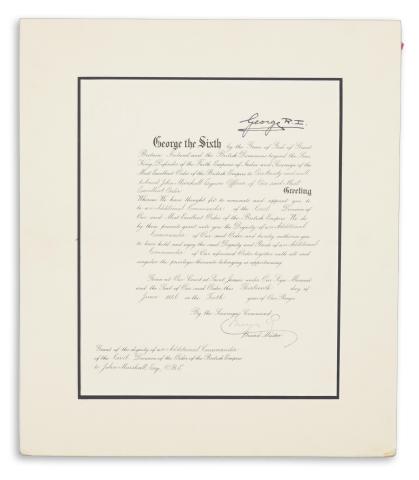 George R.I.
George the Sixth by the Grace of God of Great
Britain Ireland and the British Dominions beyond the Seas
King, Defender of the Faith Emperor of India and Sovereign of the
Most Excellent Order of the British Empire to Our trusty and well
beloved John Marshall Esquire Officer of Our said Most
Excellent Order Greeting
Whereas We have thought fit to nominate and appoint you to
be an Additional Commander of the Civil Division of
Our said Most Excellent Order of the British Empire We do
by these presents grant unto you the Dignity of an Additional
Commander of Our said Order and hereby authorise you
to have hold and enjoy the said Dignity and Rank of an Additional
Commander of Our aforesaid Order together with all and
singular the privileges thereunto belonging or appertaining.
Given at Our Court at Saint James's under Our Sign Manual
and the Seal of Our said Order this Thirteenth day of
June 1946 in the Tenth year of Our Reign.
By the Sovereign's Command.
Grand Master.
Grant of the dignity of an Additional Commander
of the Civil Division of the Order of the British Empire
to John Marshall, Esq., O.B.E.